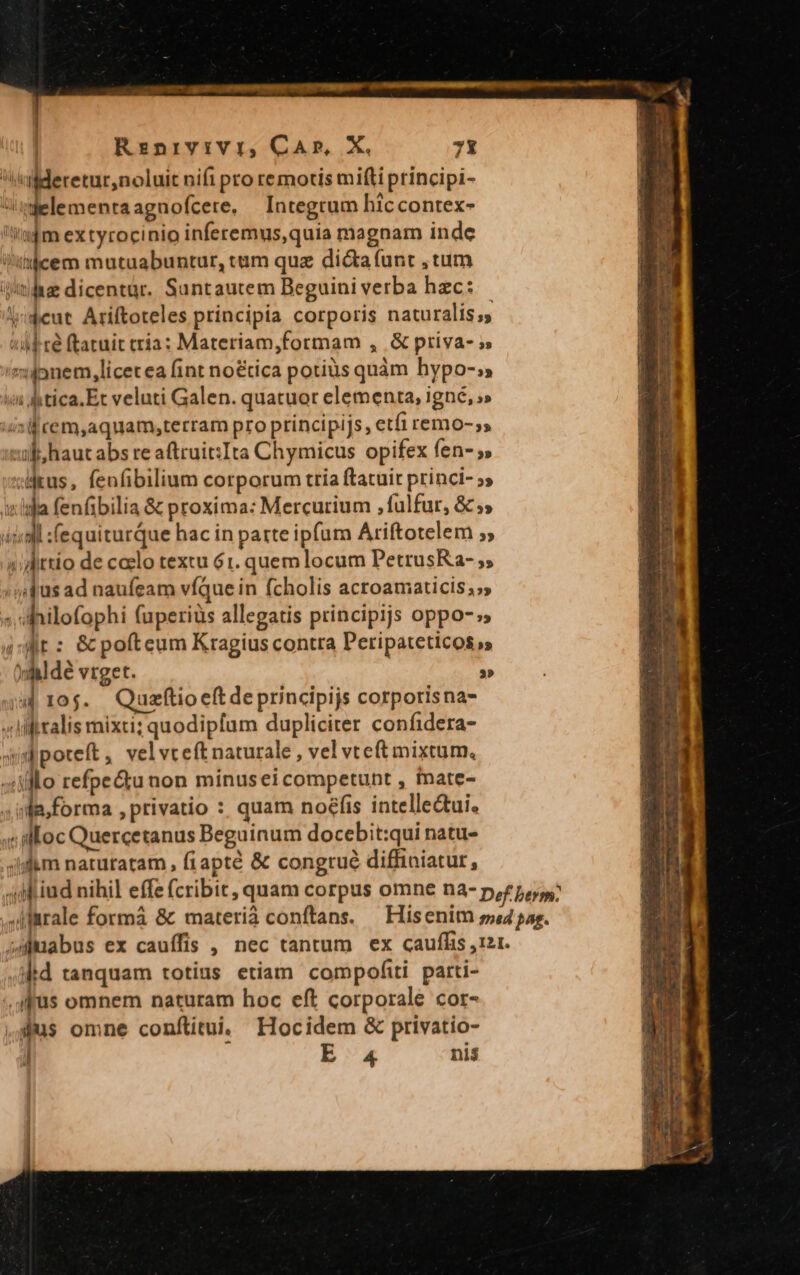 REDIVIVI, CAP. X. 71
deretur,noluit nisi pro remotis misti principi-
elementa agnoſcere. Integrum hic contex-
m ex tyrocinio inſeremus,quia magnam inde
cem mutuabuntur, tum quæ dicta ſunt , tum
dicentur. Sunt autem Beguini verba hæc:
Ariſtoteles principia corporis naturalis „
ſtatuit tria: Materiam,formam , & priva- „
nem,licet ea ſint noëtica potiùs quàm hypo- „
tica.Et veluti Galen. quatuor elementa, igné, „
rem,aquam,terram pro principijs, etſi remo- „
haut abs re aſtruit:Ita Chymicus opifex ſen- „
ſenſibilium corporum tria ſtatuit princi- „
ſenſibilia & proxima: Mercurium , ſulfur, & „
:ſequiturque hac in parte ipſum Ariſtotelem „
tio de cœlo textu 61. quem locum Petrus Ra- „
us ad nauſeam vſque in ſcholis acroamaticis, „
iloſophi ſuperiùs allegatis principijs oppo- „
: & poſt eum Kragius contra Peripateticos „
ldè vrget. „
105. Quæſtio eſt de principijs corporis na-
ralis mixti; quodipſum dupliciter conſidera-
poteſt , vel vt eſt naturale , vel vt eſt mixtum.
reſpectu non minus ei competunt , mate-
forma , privatio : quam noëſis intellectui.
oc Quercetanus Beguinum docebit:qui natu-
m naturatam , ſi aptè & congruè diffiniatur ,
iud nihil eſſe ſcribit, quam corpus omne na- Def. herm.
rale formâ & materiâ conſtans. His enim med pag.
uabus ex cauſſis , nec tantum ex cauſſis , 121.
d tanquam totius etiam compoſiti parti-
us omnem naturam hoc eſt corporale cor-
us omne conſtitui. Hoc idem & privatio-
E 4 nis